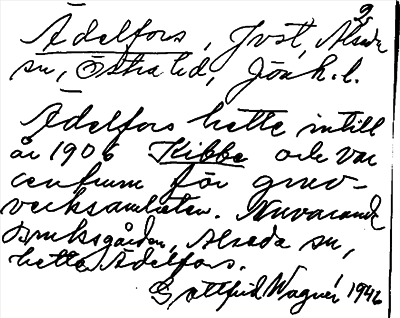 2.
Ädelfors, Jvst, Alseda
sn, Östra hd, Jönk. l.
Ädelfors hette intill
år 1906 Kibbe och var
centrum för gruv-
verksamheten. Nuvarande
Bruksgården, Alseda sn,
hette Ädelfors.
Gottfrid Wagnér 1946